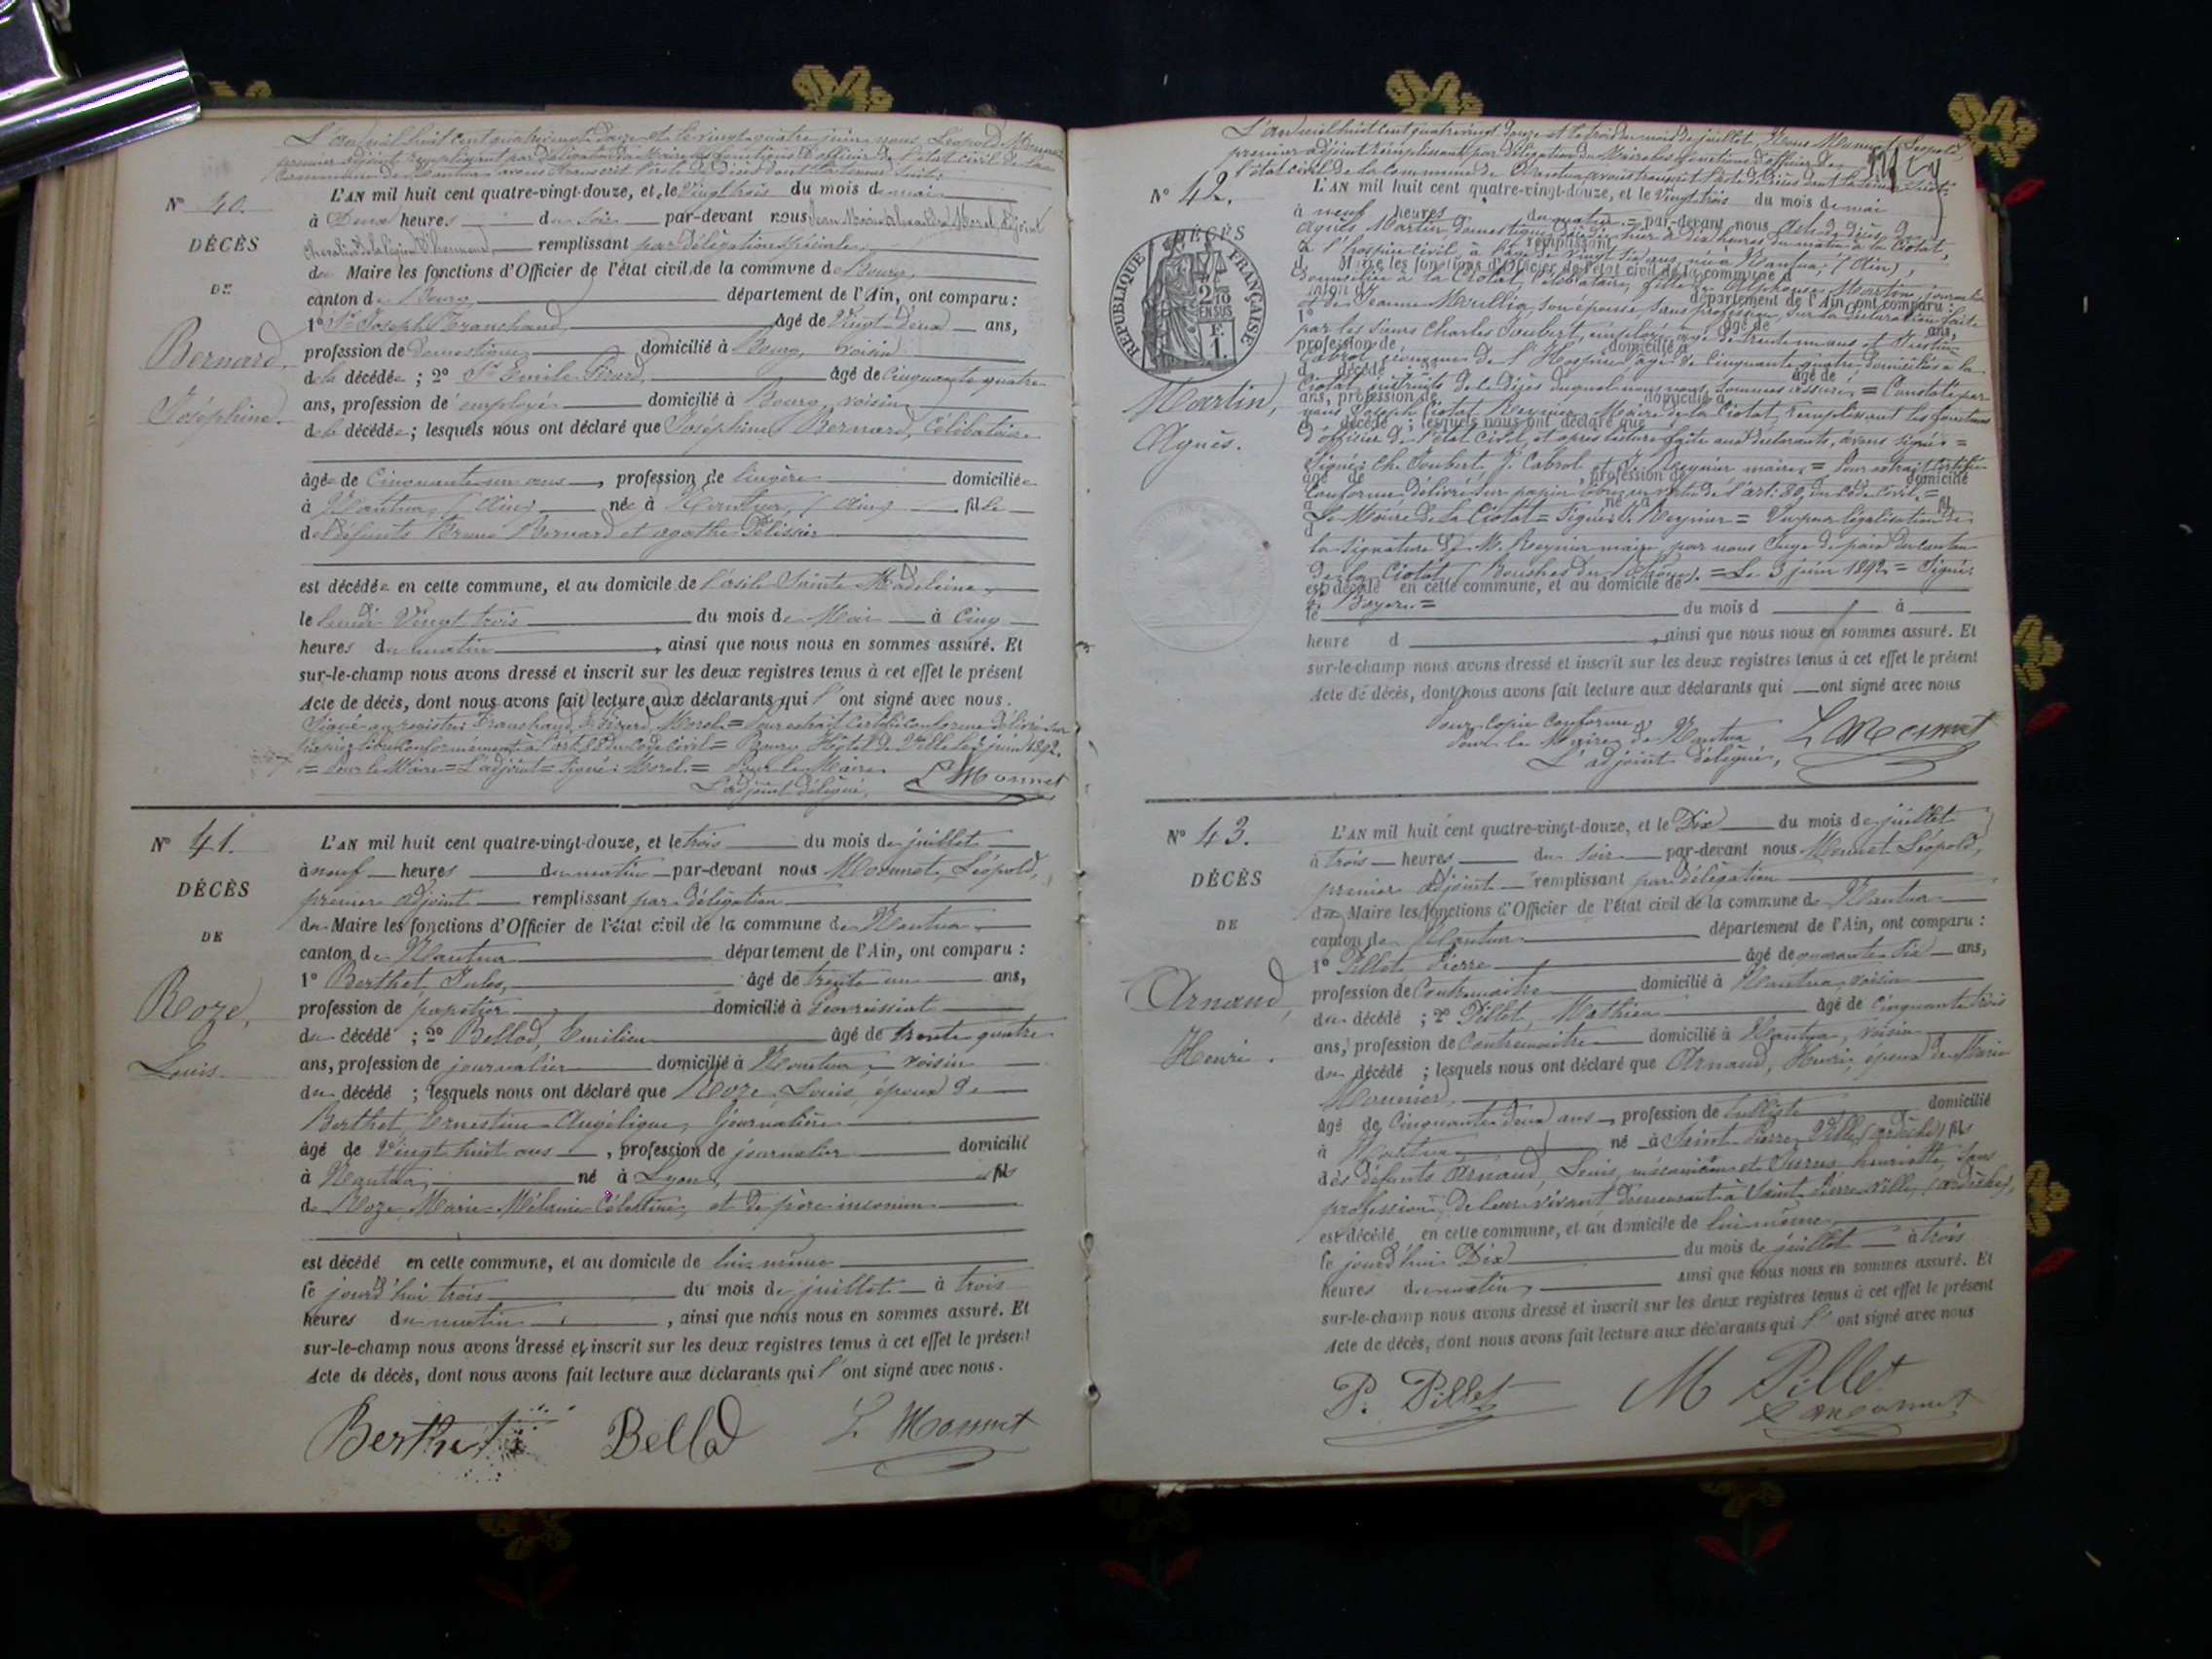 L'an mil huit cent quatre vingt douze et le vingt quatre juin, nous, Léopold Monnet
premier adjoint remplissant par délégation du Maire les fonctions d'officier de l'état civil de la
Commune de Nantua avons transcrit l'acte de Décès dont la teneur suit:
N° 40.
DÉCÈS
DE
Bernard,
Joséphine.
L'AN mil huit cent quatre-vingt-douze, et le Vingt trois du mois de mai
à Deux heures du soir par-devant nous Jean Marie Morel, adjoint
Chevalier de la Légion d'honneur, remplissant par délégation spéciale
du Maire les fonctions d'Officier de l'état civil de la commune de Bourg
canton de Bourg département de l'Ain, ont comparu :
1° Sr Joseph Tranchand, âgé de Vingt-Deux ans,
profession de domestique domicilié à Bourg, voisin
de la décédée ; 2° Sr Emile Girard, âgé de Cinquante quatre
ans, profession de employé domicilié à Bourg, voisin
de la décédée ; lesquels nous ont déclaré que Joséphine Bernard, Célibataire
âgée de Cinquante un ans, profession de lingère domiciliée
à Nantua, (Ain) née à Nantua, (Ain) fille
de défunts Bruno Bernard et Agathe Pélissier
est décédée en cette commune, et au domicile de l'asile Sainte Madeleine
le lundi Vingt trois du mois de Mai à Cinq
heures du matin, ainsi que nous nous en sommes assuré. Et
sur-le-champ nous avons dressé et inscrit sur les deux registres tenus à cet effet le présent
Acte de décès, dont nous avons fait lecture aux déclarants qui l'ont signé avec nous.
Signé au registre: Tranchand, Girard, Morel = Pour extrait certifié conforme délivré sur
papier libre conformément à l'art. 80 du Code Civil = Bourg Hôtel de Ville le 2 juin 1892.
= Pour le Maire = L'adjoint = Signé: Morel. = Pour le Maire
L'adjoint délégué, L. Monnet
N° 41.
DÉCÈS
DE
Roze,
Louis.
L'AN mil huit cent quatre-vingt-douze, et le trois du mois de juillet
à neuf heures du matin par-devant nous Monnet, Léopold,
premier adjoint remplissant par délégation
du Maire les fonctions d'Officier de l'état civil de la commune de Nantua
canton de Nantua département de l'Ain, ont comparu :
1° Berthet Jules, âgé de trente un ans,
profession de papetier domicilié à Geovreissiat
du décédé ; 2° Bellod, Emilien âgé de trente quatre
ans, profession de journalier domicilié à Nantua, voisin
du décédé ; lesquels nous ont déclaré que Roze Louis, époux de
Berthet, Ernestine Angélique, journalière
âgé de Vingt huit ans, profession de journalier domicilié
à Nantua, né à Lyon, fils
de Roze Marie Mélanie Célestine, et de père inconnu
est décédé en cette commune, et au domicile de lui même
le jourd'hui trois du mois de juillet à trois
heures du matin, ainsi que nous nous en sommes assuré. Et
sur-le-champ nous avons dressé et inscrit sur les deux registres tenus à cet effet le présent
Acte de décès, dont nous avons fait lecture aux déclarants qui l'ont signé avec nous.
Berthet Bellod L. Monnet
L'an mil huit cent quatre vingt douze et le trois du mois de juillet, Nous Monnet, Léopold,
premier adjoint remplissant par délégation du Maire les fonctions d'officier de
l'état civil de la commune de Nantua avons transcrit l'acte de décès dont la teneur suit:
N° 42.
DÉCÈS
RÉPUBLIQUE FRANÇAISE
2/10 EN SUS
F.
1.
Martin,
Agnès.
L'AN mil huit cent quatre-vingt-douze, et le Vingt trois du mois de mai
à neuf heures du matin = par-devant nous Acte de décès de
Agnès Martin, domestique, décédée hier à dix heures du matin à la Ciotat,
remplissant
à l'hospice civil à l'âge de vingt six ans, née à Nantua, (Ain),
d Maire les fonctions d'Officier de l'état civil de la commune d
domiciliée à la Ciotat, célibataire, fille de Alphonse Martin, journalier
canton d département de l'Ain, ont comparu :
et de Jeanne Maillia, son épouse sans profession, sur la déclaration faite
1° âgé de ans,
par les sieurs Charles Joubert, employé, âgé de trente un ans et Justin
profession de domicilié à
Cabrol, économe de l'Hospice, âgé de cinquante quatre, domiciliés à la
d décédé ; 2° âgé de
Ciotat, du décès duquel nous nous sommes assuré, = Constaté par
ans, profession de domicilié à
nous Joseph Ciotat Reynier, Maire de la Ciotat, remplissant les fonctions
d décédé ; lesquels nous ont déclaré que
d'officier de l'état civil, et après lecture faite aux déclarants, avons signé =
Signé: Ch. Joubert, J. Cabrol, et J. Reynier maire = Pour extrait certifié
âgé de profession de domicilié
Conforme, délivré sur papier libre en vertu de l'art: 80, du Code Civil. =
à né à fil
Le Maire de la Ciotat = Signé: J. Reynier = Vu pour légalisation de
d
la signature de M. Reynier maire, par nous Juge de paix du canton
de la Ciotat (Bouches du Rhône). = Le 3 juin 1892 = Signé:
est décédé en cette commune, et au domicile de
Boyer. =
le du mois d à
heure d , ainsi que nous nous en sommes assuré. Et
sur-le-champ nous avons dressé et inscrit sur les deux registres tenus à cet effet le présent
Acte de décès, dont nous avons fait lecture aux déclarants qui ont signé avec nous
Pour copie Conforme
Pour le Maire de Nantua
L'adjoint délégué, L. Monnet
N° 43.
DÉCÈS
DE
Arnaud,
Henri.
L'AN mil huit cent quatre-vingt-douze, et le Dix du mois de juillet
à trois heures du soir par-devant nous Monnet Léopold,
premier adjoint remplissant par délégation
du Maire les fonctions d'Officier de l'état civil de la commune de Nantua
canton de Nantua département de l'Ain, ont comparu :
1° Pillet Pierre âgé de quarante six ans,
profession de Contremaître domicilié à Nantua, voisin
du décédé ; 2° Pillet, Mathieu âgé de Cinquante trois
ans, profession de Contremaitre domicilié à Nantua, voisin
du décédé ; lesquels nous ont déclaré que Arnaud, Henri, époux de Marie
Mounier,
âgé de Cinquante Deux ans, profession de tulliste domicilié
à Nantua né à Saint Pierre Ville (Ardèche) fils
des défunts Arnaud, Louis, mécanicien et henriette, sans
profession, de leur vivant demeurant à Saint Pierre Ville, (Ardèche),
est décédé en cette commune, et au domicile de lui même
le jourd'hui Dix du mois de juillet à trois
heures du matin, ainsi que nous nous en sommes assuré. Et
sur-le-champ nous avons dressé et inscrit sur les deux registres tenus à cet effet le présent
Acte de décès, dont nous avons fait lecture aux déclarants qui l'ont signé avec nous
P. Pillet M Pillet
L Monnet